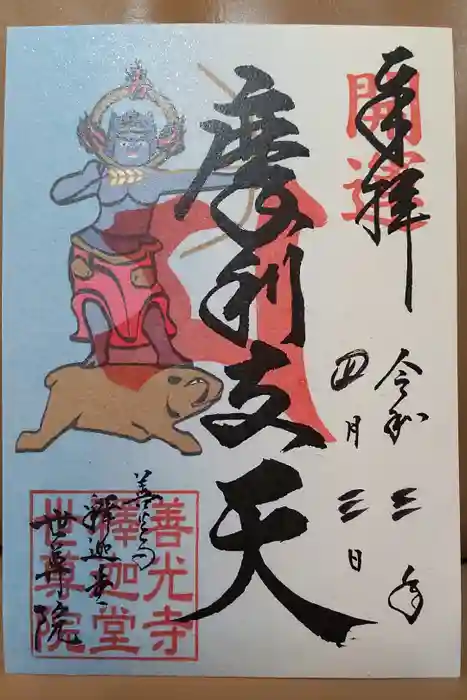 開運
奉拝
令和三年
四月三日
摩利支天
善光寺
釋迦堂
世尊院
善光寺
釋迦堂
世尊院